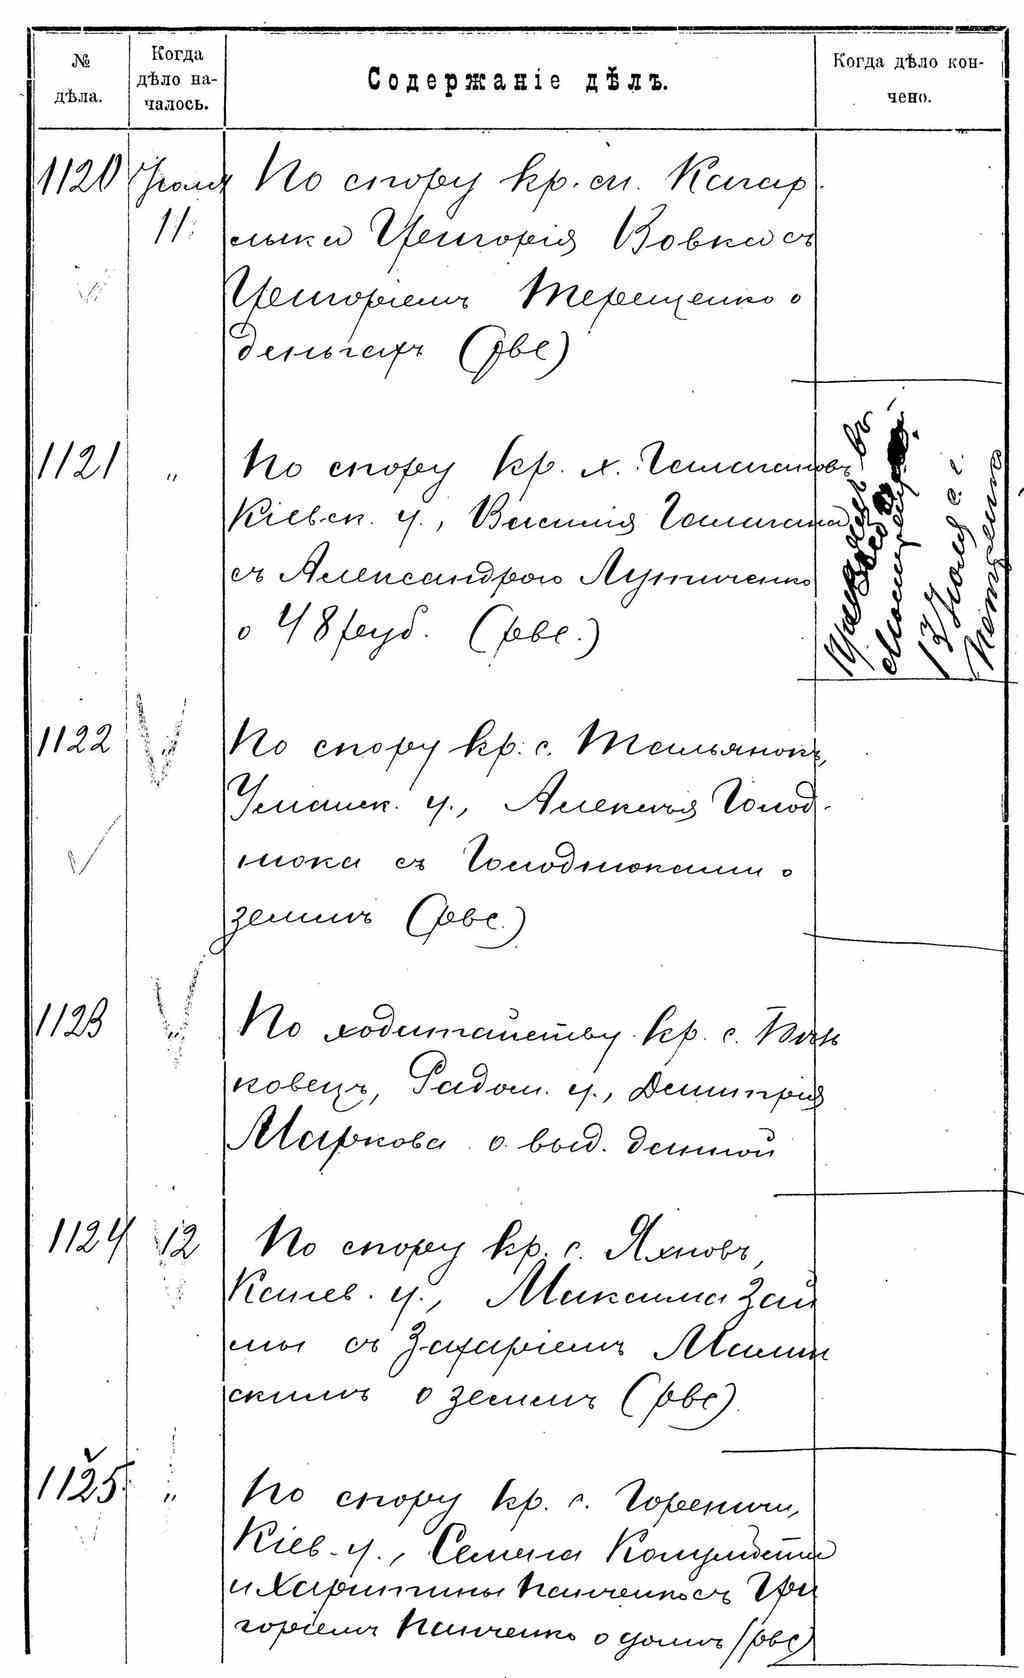 № дѣла.
Когда дѣло на-
чалось.
Содержаніе дѣлъ.
Когда дѣло кон-
чено.
1120 Іюля 11. По спору кр. м. Кагар-
лыка Григорія Вовка съ
Григоріемъ Терещенко о
деньгахъ (рвс)
1121 „ По спору кр. х. Галагановъ
Кіевск. у., Василія Галагана
съ Александрою Лутченко
о 48 руб. (рвс.)
13 Іюля с. г.
1122 „ По спору кр. с. Тальянокъ,
Уманск. у., Алексѣя Голод-
нюка съ Голоднюками о
землѣ (рвс.)
1123 „ По ходатайству кр. с.
ковецъ, Радом. у., Димитрія
Маркова о выд. данной
1124 12 По спору кр. с. Яхновъ,
Канев. у., Максима Зай
мы съ Захаріемъ Малин
скимъ о землѣ (рвс)
1125 „ По спору кр. с. Гореничи,
Кіев. у., Семена
и Харитины Панченко съ Гри
горіемъ Панченко о домѣ (рвс)